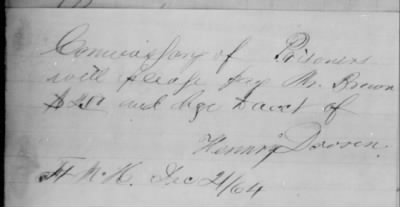 Commissary of Prisoners
will please pay Mr. Brown
and chge to acct of
Henry
Ft McH. Dec 21/64